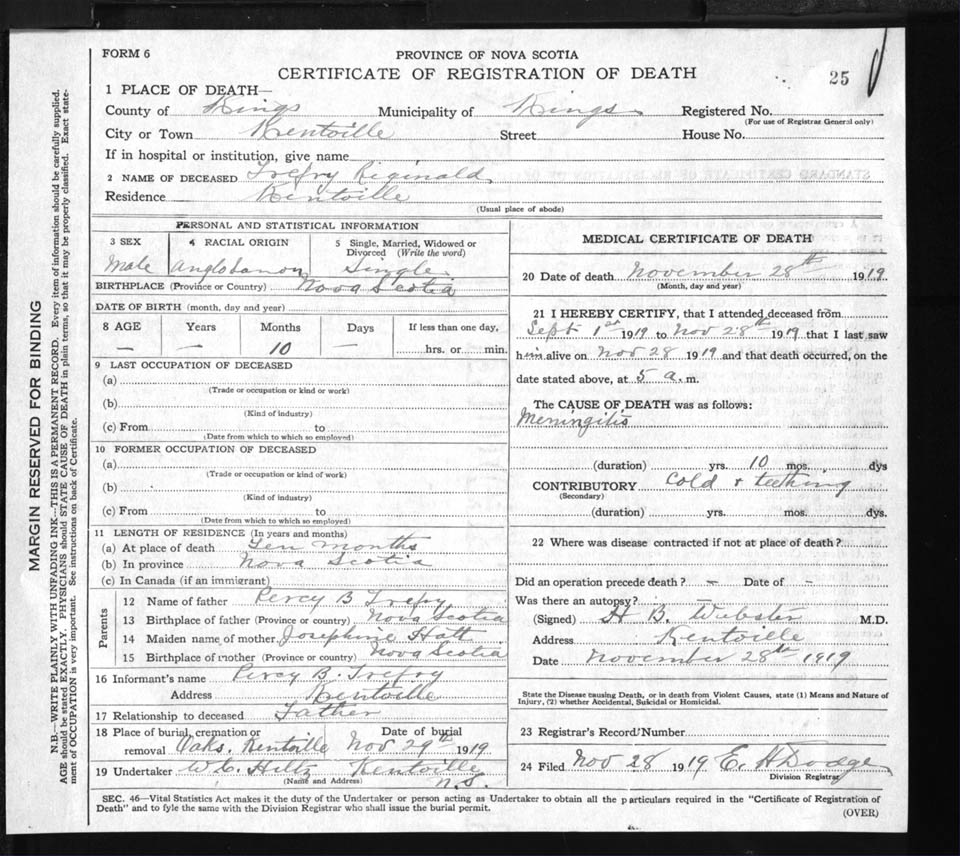 FORM 6
PROVINCE OF NOVA SCOTIA
CERTIFICATE OF REGISTRATION OF DEATH
25
1 PLACE OF DEATH—
County of Kings Municipality of Kings Registered No.
(For use of Registrar General only)
City or Town Kentville Street House No.
If in hospital or institution, give name
2 NAME OF DECEASED Trefry Reginald
Residence Kentville
(Usual place of abode)
PERSONAL AND STATISTICAL INFORMATION
3 SEX 4 RACIAL ORIGIN 5 Single, Married, Widowed or Divorced (Write the word)
Male Single
BIRTHPLACE (Province or Country) Nova Scotia
DATE OF BIRTH (month, day and year)
8 AGE Years Months Days If less than one day,
— — 10 — hrs. or min.
9 LAST OCCUPATION OF DECEASED
(a)
(Trade or occupation or kind or work)
(b)
(Kind of industry)
(c) From to
(Date from which to which so employed)
10 FORMER OCCUPATION OF DECEASED
(a)
(Trade or occupation or kind of work)
(b)
(Kind of industry)
(c) From to
(Date from which to which so employed)
11 LENGTH OF RESIDENCE (In years and months)
(a) At place of death Ten months
(b) In province Nova Scotia
(c) In Canada (if an immigrant)
Parents
12 Name of father Percy B Trefry
13 Birthplace of father (Province or country) Nova Scotia
14 Maiden name of mother Josephine Hatt
15 Birthplace of mother (Province or country) Nova Scotia
16 Informant's name Percy B. Trefry
Address Kentville
17 Relationship to deceased Father
18 Place of burial, cremation or removal Oaks, Kentville Date of burial Nov 29th 1919
19 Undertaker W.C. Hiltz Kentville N.S.
(Name and Address)
MEDICAL CERTIFICATE OF DEATH
20 Date of death November 28th 1919
(Month, day and year)
21 I HEREBY CERTIFY, that I attended deceased from
Sept 1st 1919 to Nov 28th 1919 that I last saw
him alive on Nov 28 1919 and that death occurred, on the
date stated above, at 5 a. m.
The CAUSE OF DEATH was as follows:
Meningitis
(duration) yrs. 10 mos. dys
CONTRIBUTORY Cold & teething
(Secondary)
(duration) yrs. mos. dys.
22 Where was disease contracted if not at place of death?
Did an operation precede death? — Date of —
Was there an autopsy?
(Signed) H B. Webster M.D.
Address Kentville
Date November 28th 1919
State the Disease causing Death, or in death from Violent Causes, state (1) Means and Nature of
Injury, (2) whether Accidental, Suicidal or Homicidal.
23 Registrar's Record Number
24 Filed Nov 28 1919 E. H Dodge
Division Registrar
SEC. 46—Vital Statistics Act makes it the duty of the Undertaker or person acting as Undertaker to obtain all the particulars required in the "Certificate of Registration of
Death" and to fyle the same with the Division Registrar who shall issue the burial permit.
(OVER)
MARGIN RESERVED FOR BINDING
N.B.—WRITE PLAINLY WITH UNFADING INK—THIS IS A PERMANENT RECORD. Every item of information should be carefully supplied.
AGE should be stated EXACTLY. PHYSICIANS should STATE CAUSE OF DEATH in plain terms, so that it may be properly classified. Exact state-
ment of OCCUPATION is very important. See instructions on back of Certificate.